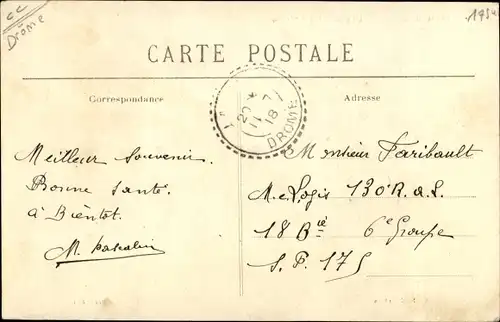 cc
Drôme
CARTE POSTALE
Correspondance
Adresse
DROME
Meilleur Souvenir
Bonne Santé
à Bientot.
Monsieur Faribault
M. e Logis 130 R.a.L
18 Bie 6e Groupe
S.P. 175